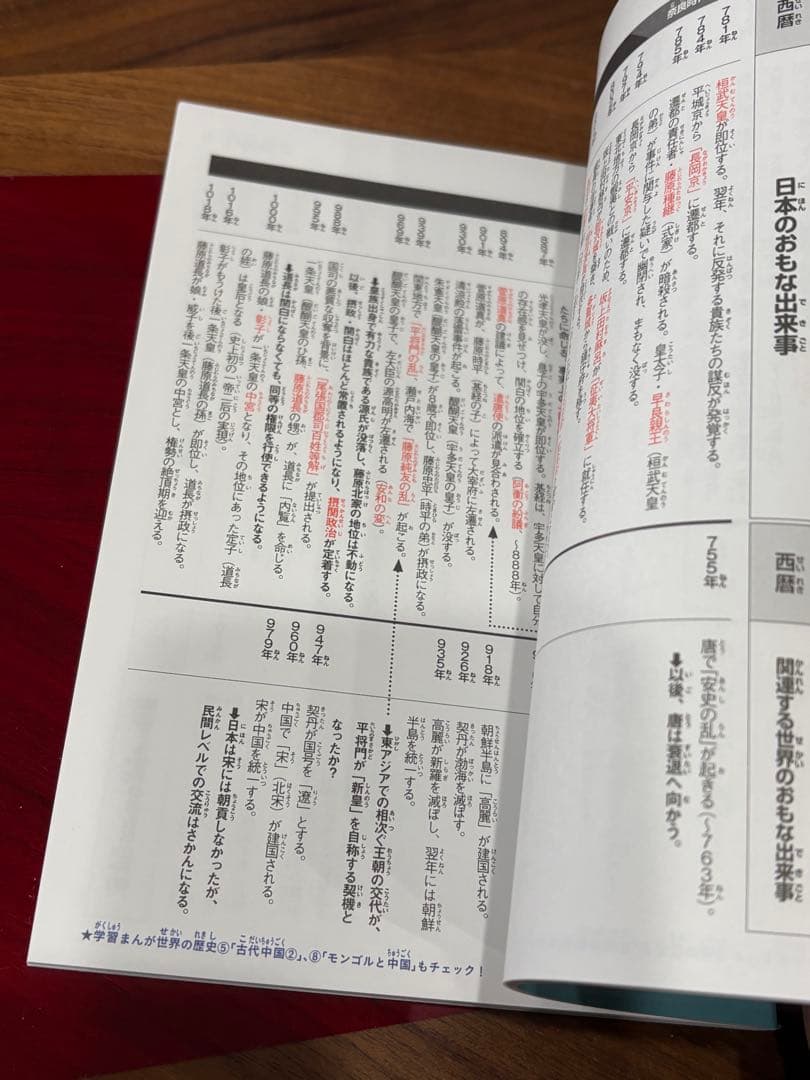 西暦
日本のおもな出来事
781年
桓武天皇が即位する。翌年、それに反発する貴族たちの謀反が発覚する。
784年
平城京から「長岡京」に遷都する。
785年
遷都の責任者・藤原種継（式家）が暗殺される。皇太子・早良親王（桓武天皇
の弟）が事件に関与した疑いで幽閉され、まもなく没する。
794年
長岡京から「平安京」に遷都する。
797年
坂上田村麻呂が「征夷大将軍」に就任する。
西暦
関連する世界のおもな出来事
755年
唐で「安史の乱」が起きる（〜763年）。
➡以後、唐は衰退へ向かう。
887年
光孝天皇が没し、息子の宇多天皇が即位する。基経は、宇多天皇に対して自分
の存在感を見せつけ、関白の地位を確立する（阿衡の紛議、〜888年）。
894年
菅原道真の建議によって、遣唐使の派遣が見合わされる。
901年
菅原道真が、藤原時平（基経の子）によって大宰府に左遷される。
930年
清涼殿の落雷事件が起こる。醍醐天皇（宇多天皇の皇子）が没する。
朱雀天皇（醍醐天皇の皇子）が8歳で即位し、藤原忠平（時平の弟）が摂政になる。
939年
関東地方で「平将門の乱」、瀬戸内海で「藤原純友の乱」が起こる。
969年
醍醐天皇の皇子で、左大臣の源高明が左遷される（安和の変）。
➡皇族出身で有力な貴族である源氏が没落し、藤原北家の地位は不動になる。
以後、摂政・関白はほとんど常置されるようになり、摂関政治が定着する。
988年
国司の悪質な収奪を背景に、「尾張国郡司百姓等解」が提出される。
995年
一条天皇（醍醐天皇のひ孫、藤原道長の甥）が、道長に「内覧」を命じる。
➡道長は関白にならなくても、同等の権限を行使できるようになる。
1000年
藤原道長の娘・彰子が一条天皇の中宮となり、その地位にあった定子（道長
の姪）は皇后となる（史上初の「一帝二后」の実現）。
1016年
彰子がもうけた後一条天皇（藤原道長の孫）が即位し、道長が摂政になる。
1018年
藤原道長が娘・威子を後一条天皇の中宮とし、権勢の絶頂期を迎える。
918年
朝鮮半島に「高麗」が建国される。
926年
契丹が渤海を滅ぼす。
935年
高麗が新羅を滅ぼし、翌年には朝鮮
半島を統一する。
➡東アジアでの相次ぐ王朝の交代が、
平将門が「新皇」を自称する契機と
なったか？
947年
契丹が国号を「遼」とする。
960年
中国で「宋」（北宋）が建国される。
979年
宋が中国を統一する。
➡日本は宋には朝貢しなかったが、
民間レベルでの交流はさかんになる。
★学習まんが世界の歴史⑤「古代中国②」、⑧「モンゴルと中国」もチェック！